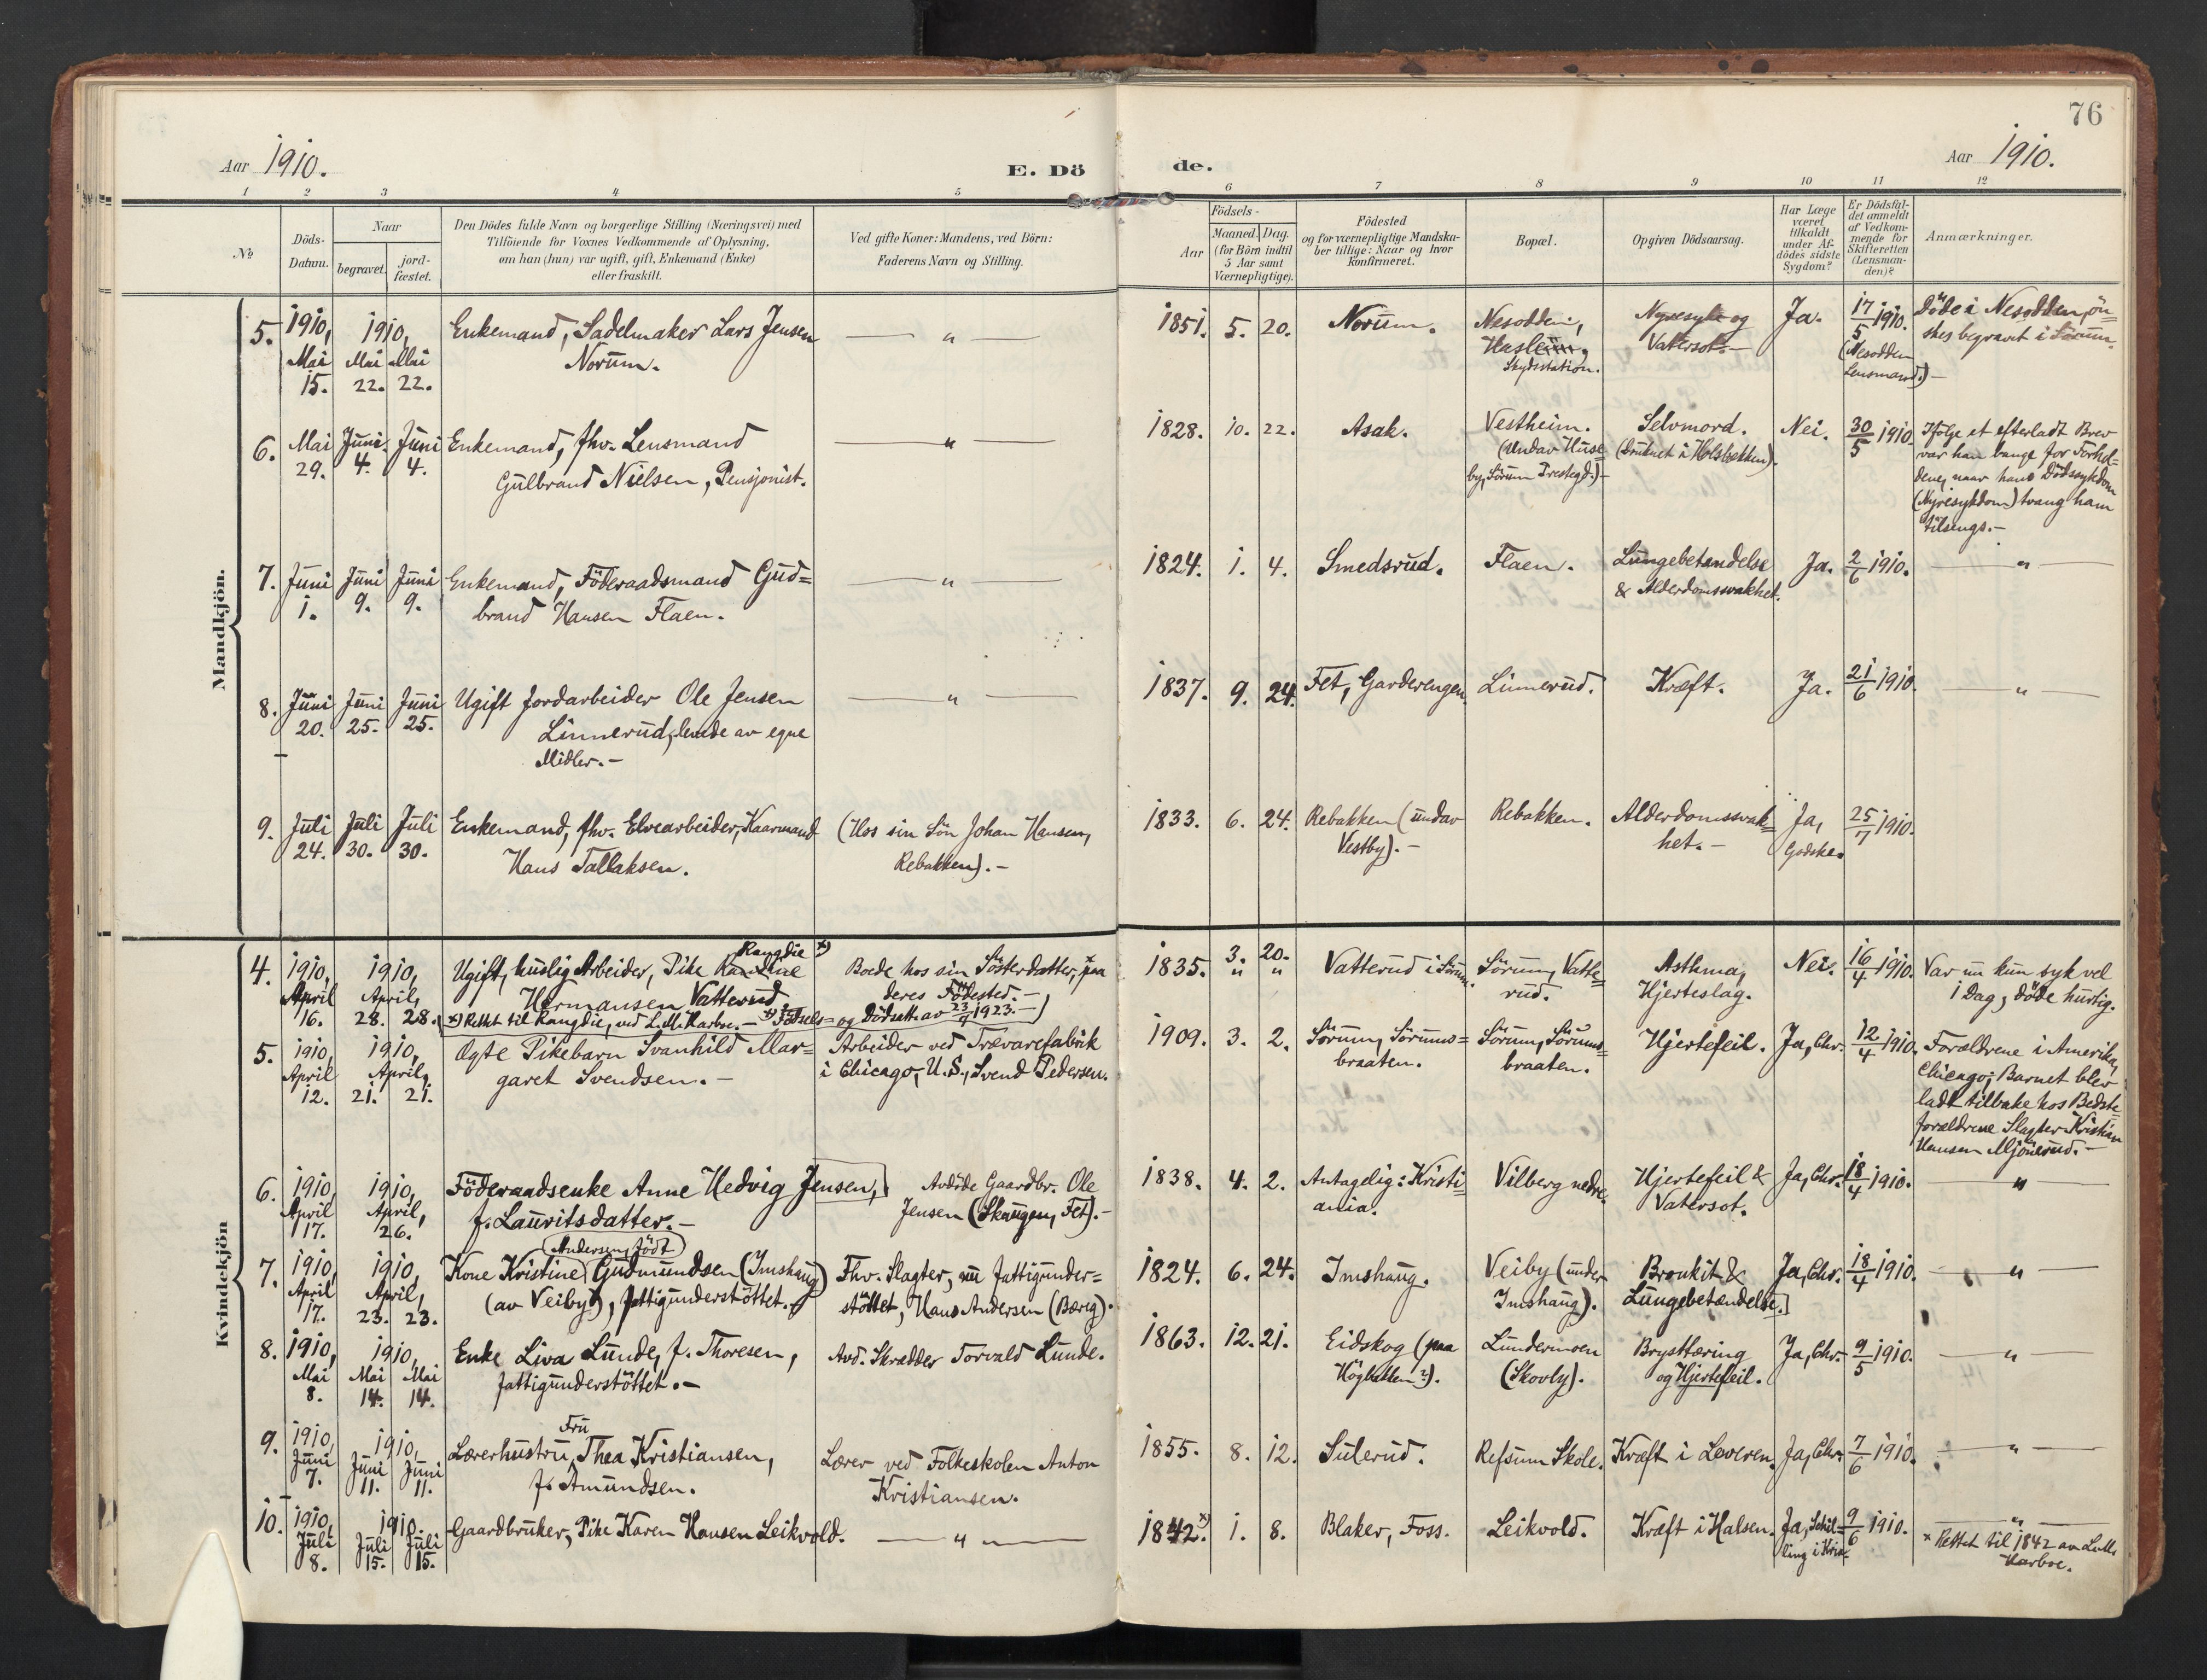 76
Aar 1910.
E. Dö
de.
Aar 1910.
1 2 3 4 5 6 7 8 9 10 11 12
No
Döds-
Datum.
Naar
begravet.
jord-
fæstet.
Den Dödes fulde Navn og borgerlige Stilling (Næringsvei) med
Tilföiende for Voxnes Vedkommende af Oplysning,
om han (hun) var ugift, gift, Enkemand (Enke)
eller fraskilt.
Ved gifte Koner: Mandens, ved Börn:
Faderens Navn og Stilling.
Födsels-
Aar
Maaned.
Dag.
(for Börn indtil
5 Aar samt
Værnepligtige).
Födested
og for værnepligtige Mandska-
ber tillige: Naar og hvor
konfirmeret.
Bopæl.
Opgiven Dödsaarsag.
Har Læge
været
tilkaldt
under Af-
dödes sidste
Sygdom?
Er Dödsfal-
det anmeldt
af Vedkom-
mende for
Skifteretten
(Lensman-
den)?
Anmærkninger.
Mandkjön.
5.
1910,
Mai
15.
1910,
Mai Mai
22. 22.
Enkemand, Sadelmaker Lars Jensen
Norum.
— " —
1851. 5. 20.
Norum.
Nesodden,
Hasleum,
Skydsstation.
Nyresyke og
Vatersot.—
Ja.
17/5 1910.
(Nesodden
Lensmand.)—
Döde i Nesodden, ön=
skes begravet i Sörum.
6.
Mai
29.
Juni
4.
Juni
4.
Enkemand, fhv. Lensmand
Gulbrand Nielsen, Pensjonist.
— " —
1828. 10. 22.
Asak.
Vestheim.
(Undav Huse=
by, Sörum Prestegd.)—
Selvmord.
(Druknet i Holsbækken).
Nei.
30/5 1910.
Ifölge et efterladt Brev
var han bange for Forhol=
dene, naar hans Dödssykdom
(Nyresykdom) tvang ham
tilsengs.—
7.
Juni
1.
Juni
9.
Juni
9.
Enkemand, Föderaadsmand Gud=
brand Hansen Flaen.
— " —
1824. 1. 4.
Smedsrud.
Flaen.
Lungebetændelse
& Alderdomssvakhet.
Ja.
2/6 1910.
— " —
8.
Juni
20.
Juni
25.
Juni
25.
Ugift Jordarbeider Ole Jensen
Linnerud, levde av egne
Midler.—
— " —
1837. 9. 24.
Fet, Garderengen.
Linnerud.
Kræft.
Ja.
21/6 1910.
— " —
9.
Juli
24.
Juli
30.
Juli
30.
Enkemand, fhv. Elvearbeider, Kaarmand
Hans Tallaksen.
(Hos sin Sön Johan Hansen,
Rebakken).—
1833. 6. 24.
Rebakken (undav
Vestby).—
Rebakken.
Alderdomssvak=
het.—
Ja,
Godske.
25/7 1910.
Kvindekjön
4.
1910,
April
16.
1910,
April,
28. 28.
Rangdie x)
Ugift, huslig Arbeider, Pike Randine
Hermansen Vatterud.
x) Rettet til Rangdie, ved L. M. Harboe.— x) Födsels= og Dödsatt. av 23/9 1923.—)
Boede hos sin Sösterdatter, paa
deres Födested.—
1835. 3. 20.
" "
Vatterud i Sörum.
Sörum, Vatte=
rud.
Asthma,
Hjerteslag.
Nei.
16/4 1910.
Var nu kun syk vel
1 Dag, döde hurtig.
5.
1910,
April
12.
1910,
April,
21. 21.
Ogte Pikebarn Svanhild Mar=
garet Svendsen.—
Arbeider ved Trævarefabrik
i Chicago, U.S., Svend Pedersen.
1909. 3. 2.
Sörum, Sörums=
braaten.
Sörum, Sörums=
braaten.
Hjertefeil.
Ja, Chr.
12/4 1910.
Forældrene i Amerika,
Chicago; Barnet blev
ladt tilbake hos Bedste=
forældrene Slagter Kristian
Hansen Mjönerud.—
6.
1910,
April
17.
1910,
April,
26.
Föderaadsenke Anne Hedvig Jensen,
f. Lauritsdatter.—
Avdöde Gaardbr. Ole
Jensen (Skaugen, Fet).—
1838. 4. 2.
Antagelig: Kristi=
ania.
Vilberg nedre.
Hjertefeil &
Vatersot.
Ja, Chr.
18/4 1910.
— " —
7.
1910,
April
17.
1910,
April,
23. 23.
(Andersen, födt)
Kone Kristine Gudmundsen (Imshaug)
(av Veiby), fattigunderstöttet.
Fhv. Slagter, nu fattigunder=
stöttet, Hans Andersen (Bærg).
1824. 6. 24.
Imshaug.
Veiby (under
Imshaug).
Bronkit &
Lungebetændelse.
Ja, Chr.
18/4 1910.
— " —
8.
1910,
Mai
8.
1910,
Mai Mai
14. 14.
Enke Liva Lunde, f. Thoresen,
fattigunderstöttet.—
Avd. Skrædder Torvald Lunde.
1863. 12. 21.
Eidskog (paa
Högbakken?).
Lundermoen
(Skovly).
Brysttæring
og Hjertefeil.
Ja, Chr.
9/5 1910.
— " —
9.
1910,
Juni
7.
1910,
Juni Juni
11. 11.
Fru
Lærerhustru, Thea Kristiansen,
f. Amundsen.
Lærer ved Folkeskolen Anton
Kristiansen.
1855. 8. 12.
Suterud.
Refsum Skole.
Kræft i Leveren.
Ja, Chr.
7/6 1910.
— " —
10.
1910,
Juli
8.
1910.
Juli Juli
15. 15.
Gaardbruker, Pike Karen Hansen Leikvold.
— " —
1842. x) 1. 8.
Blaker, Foss.
Leikvold.
Kræft i Halsen.
Ja, Schil=
ling i Kria.
9/6 1910.
— " —
x Rettet til 1842 av L.M.
Harboe.